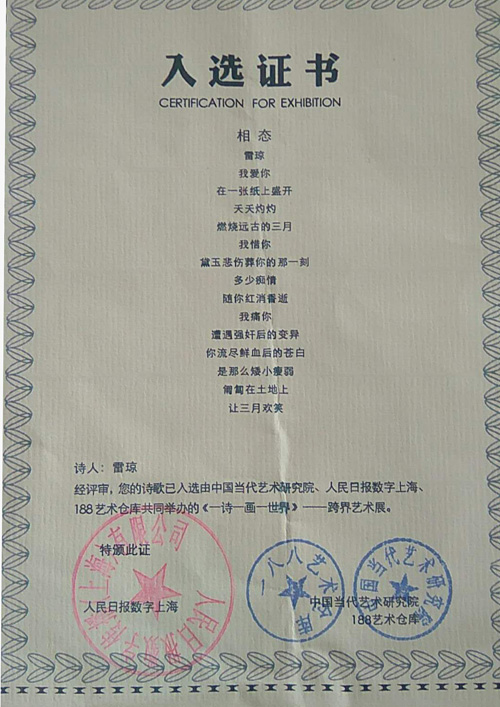 入选证书
CERTIFICATION FOR EXHIBITION
相态
雷琼
我爱你
在一张纸上盛开
夭夭灼灼
燃烧远古的三月
我惜你
黛玉悲伤葬你的那一刻
多少痴情
随你红消香逝
我痛你
遭遇强奸后的变异
你流尽鲜血后的苍白
是那么矮小瘦弱
匍匐在土地上
让三月欢笑
诗人：雷琼
经评审，您的诗歌已入选由中国当代艺术研究院、人民日报数字上海、
188艺术仓库共同举办的《一诗一画一世界》——跨界艺术展。
特颁此证
人民日报数字上海
中国当代艺术研究院
188艺术仓库
一八八艺术仓库
中国当代艺术研究院